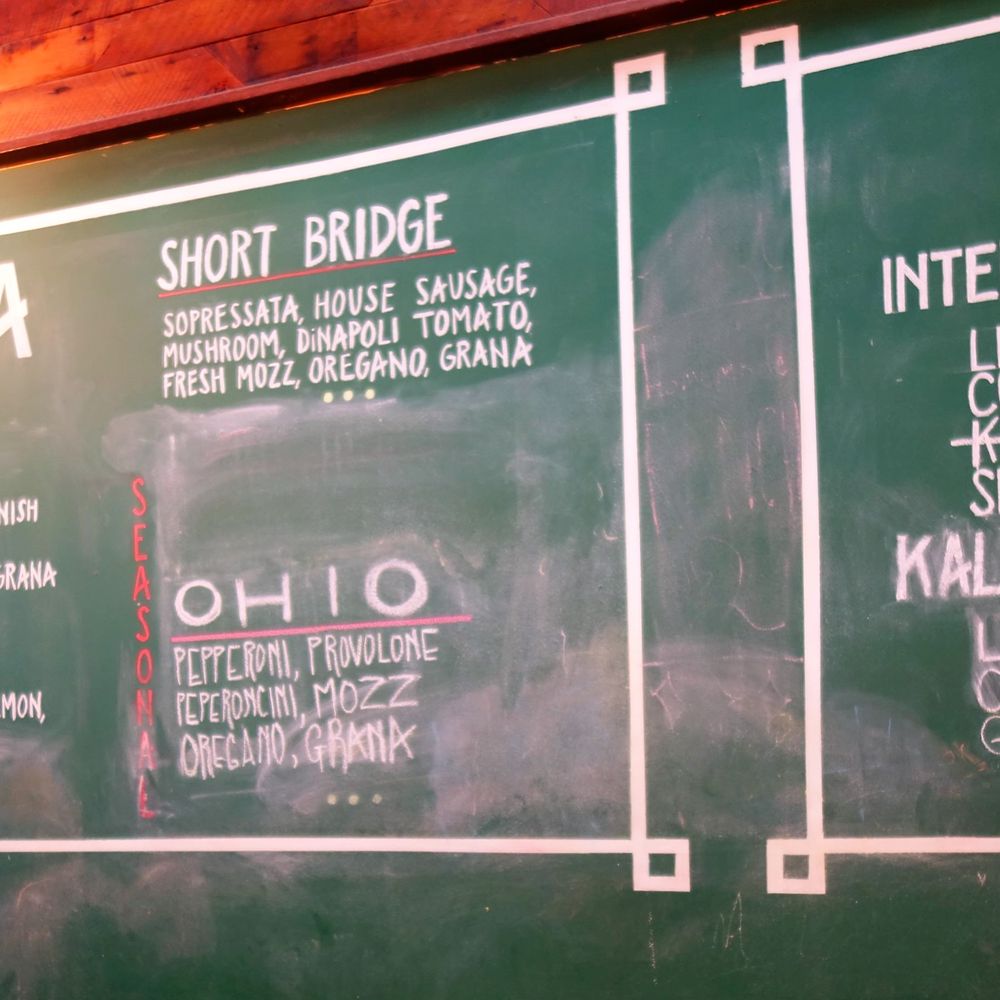 SHORT BRIDGE
SOPRESSATA, HOUSE SAUSAGE,
MUSHROOM, DiNAPOLI TOMATO,
FRESH MOZZ, OREGANO, GRANA
SEASONAL
OHIO
PEPPERONI, PROVOLONE
PEPERONCINI, MOZZ
OREGANO, GRANA
A
NISH
GRANA
MON,
INTE
KAL